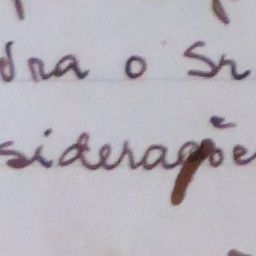 ra o Sr
sideraçõe